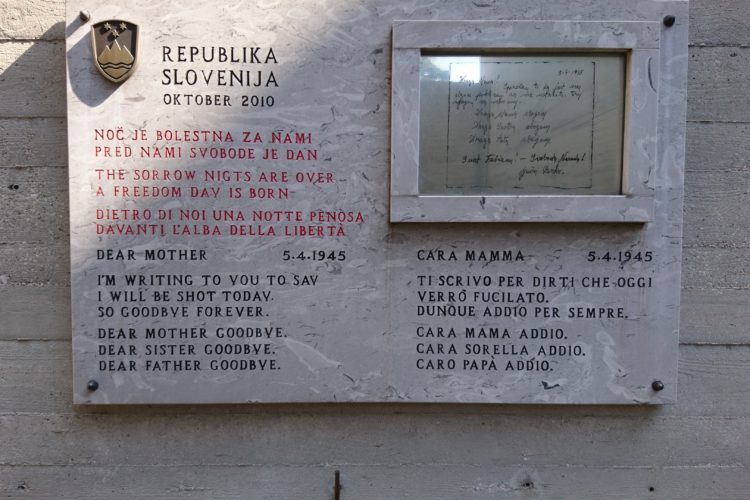 REPUBLIKA
SLOVENIJA
OKTOBER 2010
NOČ JE BOLESTNA ZA NAMI
PRED NAMI SVOBODE JE DAN
THE SORROW NIGTS ARE OVER
A FREEDOM DAY IS BORN
DIETRO DI NOI UNA NOTTE PENOSA
DAVANTI L'ALBA DELLA LIBERTÀ
DEAR MOTHER 5.4.1945
I'M WRITING TO YOU TO SAY
I WILL BE SHOT TODAY.
SO GOODBYE FOREVER.
DEAR MOTHER GOODBYE.
DEAR SISTER GOODBYE.
DEAR FATHER GOODBYE.
5-4-1945
Draga Mama!
CARA MAMMA 5.4.1945
TI SCRIVO PER DIRTI CHE OGGI
VERRÒ FUCILATO.
DUNQUE ADDIO PER SEMPRE.
CARA MAMA ADDIO.
CARA SORELLA ADDIO.
CARO PAPÀ ADDIO.